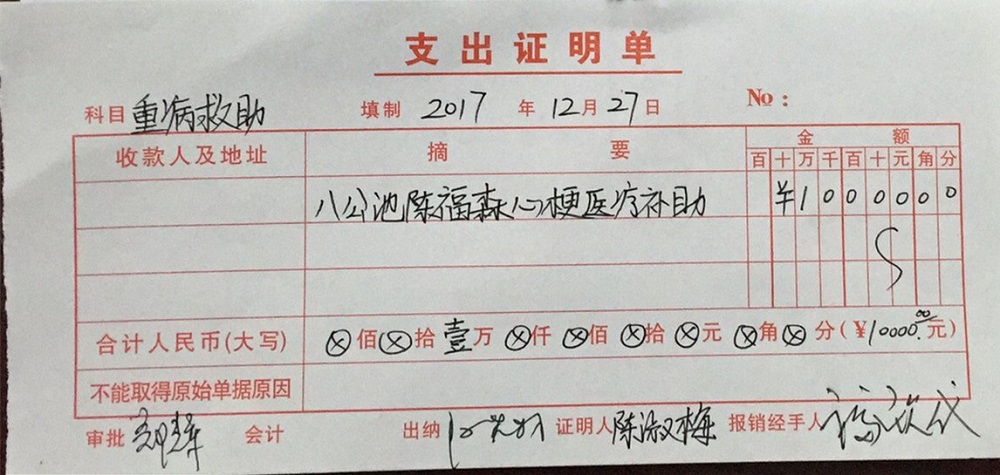 支出证明单
科目 重病救助 填制 2017 年 12 月 27 日 No：
收款人及地址 摘 要 金 额
百 十 万 千 百 十 元 角 分
八公池陈福森心梗医疗补助 ¥ 1 0 0 0 0 0 0
合计人民币(大写) ⊗ 佰 ⊗ 拾 壹 万 ⊗ 仟 ⊗ 佰 ⊗ 拾 ⊗ 元 ⊗ 角 ⊗ 分 (¥10000.00元)
不能取得原始单据原因
审批 会计 出纳 证明人 陈淑梅 报销经手人